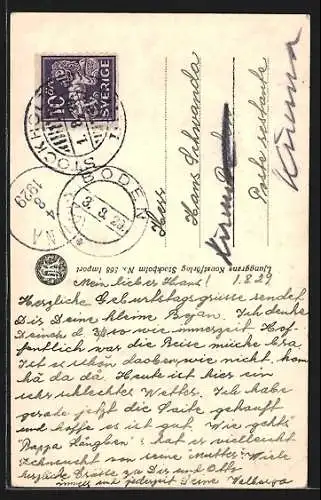 10 ÖRE
SVERIGE
STOCKHOLM
BODEN
3. 8. 29.
4 8
1929
Herr
Hans Schwanda
Poste restante
Kiruna
Kiruna
Ljungrens Konstförlag Stockholm No. 588 Import
Mein lieber Hans! 1.8.29
Herzliche Geburtstagsgrüsse sendet
Dir Deine kleine Ich denke
Deiner so wie immerzeit Hof-
fentlich war die Reise müche
Ist es schön daoben, wie nicht,
hä da dä. Heute ist hier ein
sehr schlechtes Wetter. Ich habe
gerade jetzt die gekauft
und hoffe es ist gut. Wie gehts
"Pappa hat er vielleicht
Sehnsucht von seine "Mutter"? Viele
herzliche Grüsse zu Dir und Otto
immer und jederzeit Deine